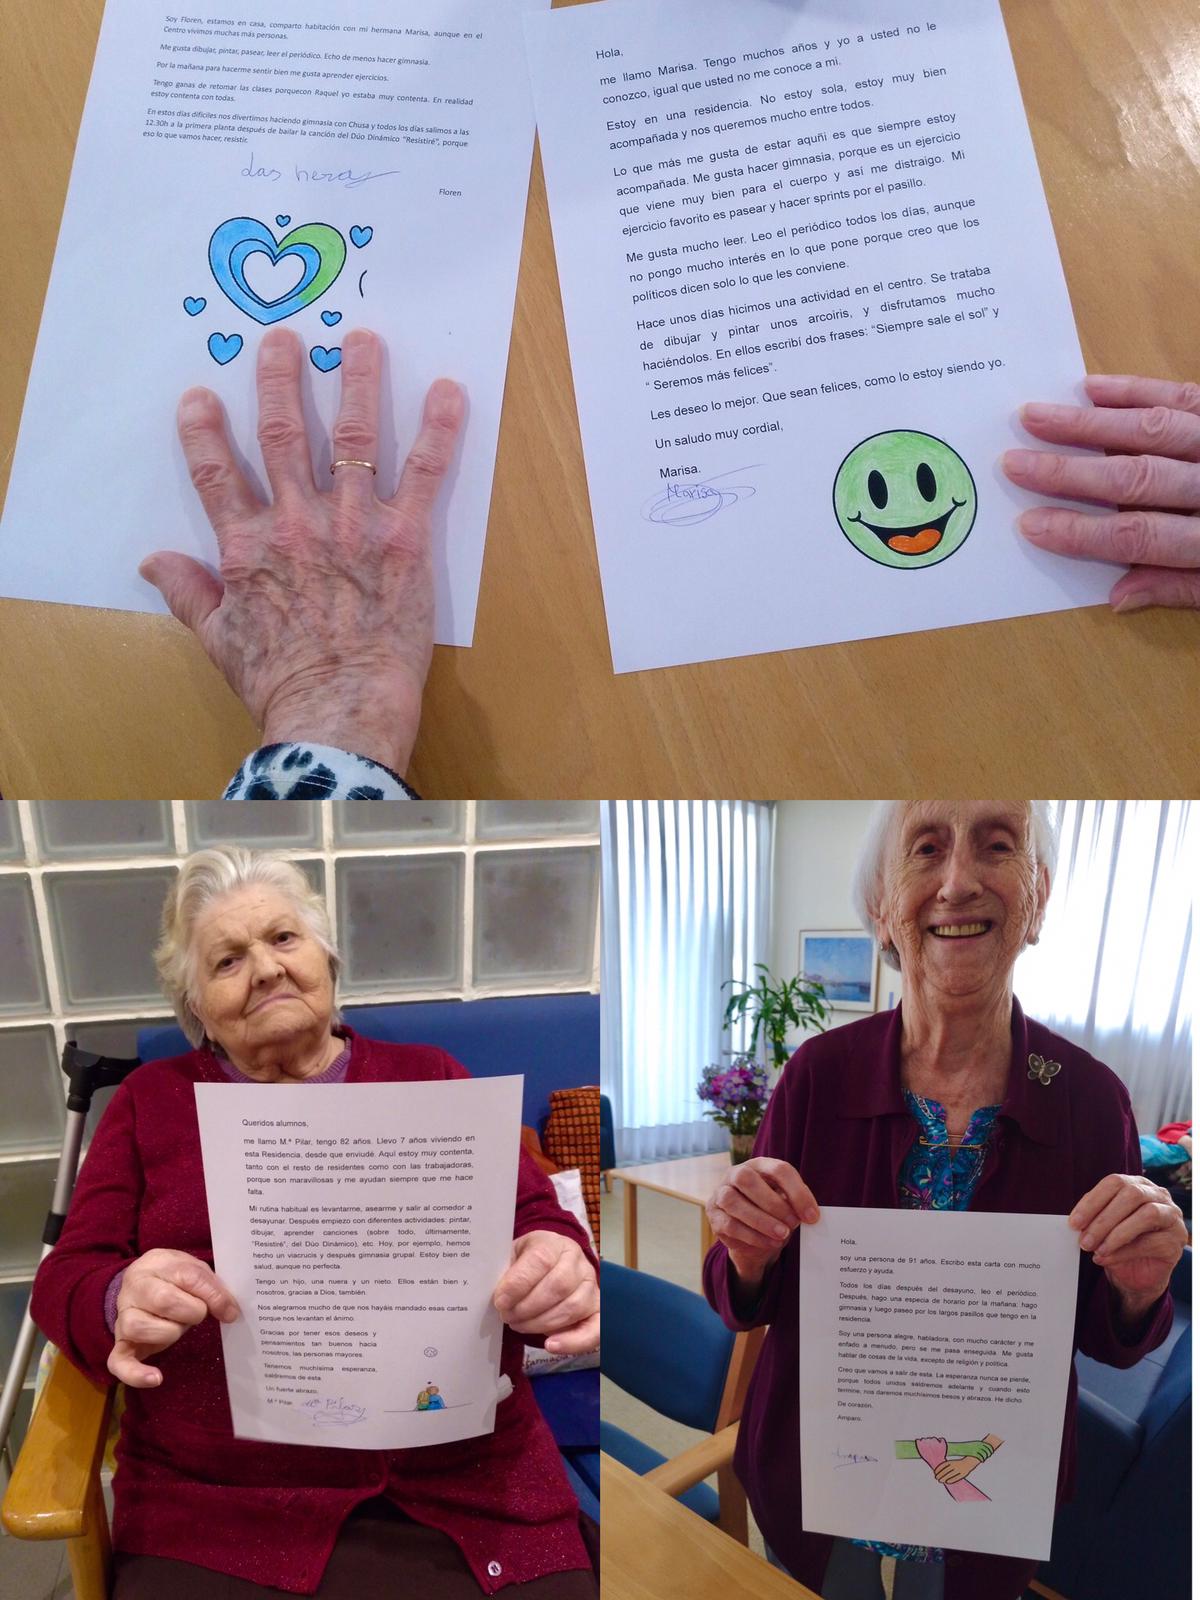 Soy Floren, estamos en casa, comparto habitación con mi hermana Marisa, aunque en el
Centro vivimos muchas más personas.
Me gusta dibujar, pintar, pasear, leer el periódico. Echo de menos hacer gimnasia.
Por la mañana para hacerme sentir bien me gusta aprender ejercicios.
Tengo ganas de retomar las clases porquecon Raquel yo estaba muy contenta. En realidad
estoy contenta con todas.
En estos días difíciles nos divertimos haciendo gimnasia con Chusa y todos los días salimos a las
12.30h a la primera planta después de bailar la canción del Dúo Dinámico "Resistiré", porque
eso lo que vamos hacer, resistir.
Floren
Hola,
me llamo Marisa. Tengo muchos años y yo a usted no le
conozco, igual que usted no me conoce a mi.
Estoy en una residencia. No estoy sola, estoy muy bien
acompañada y nos queremos mucho entre todos.
Lo que más me gusta de estar aquñi es que siempre estoy
acompañada. Me gusta hacer gimnasia, porque es un ejercicio
que viene muy bien para el cuerpo y así me distraigo. Mi
ejercicio favorito es pasear y hacer sprints por el pasillo.
Me gusta mucho leer. Leo el periódico todos los días, aunque
no pongo mucho interés en lo que pone porque creo que los
políticos dicen solo lo que les conviene.
Hace unos días hicimos una actividad en el centro. Se trataba
de dibujar y pintar unos arcoiris, y disfrutamos mucho
haciéndolos. En ellos escribí dos frases: "Siempre sale el sol" y
" Seremos más felices".
Les deseo lo mejor. Que sean felices, como lo estoy siendo yo.
Un saludo muy cordial,
Marisa.
Marisa
Queridos alumnos,
me llamo M.ª Pilar, tengo 82 años. Llevo 7 años viviendo en
esta Residencia, desde que enviudé. Aquí estoy muy contenta,
tanto con el resto de residentes como con las trabajadoras,
porque son maravillosas y me ayudan siempre que me hace
falta.
Mi rutina habitual es levantarme, asearme y salir al comedor a
desayunar. Después empiezo con diferentes actividades: pintar,
dibujar, aprender canciones (sobre todo, últimamente,
"Resistiré", del Dúo Dinámico), etc. Hoy, por ejemplo, hemos
hecho un viacrucis y después gimnasia grupal. Estoy bien de
salud, aunque no perfecta.
Tengo un hijo, una nuera y un nieto. Ellos están bien y,
nosotros, gracias a Dios, también.
Nos alegramos mucho de que nos hayáis mandado esas cartas
porque nos levantan el ánimo.
Gracias por tener esos deseos y
pensamientos tan buenos hacia
nosotros, las personas mayores.
Tenemos muchísima esperanza,
saldremos de esta.
Un fuerte abrazo,
M.ª Pilar
Mª Pilar
Hola,
soy una persona de 91 años. Escribo esta carta con mucho
esfuerzo y ayuda.
Todos los días después del desayuno, leo el periódico.
Después, hago una especia de horario por la mañana: hago
gimnasia y luego paseo por los largos pasillos que tengo en la
residencia.
Soy una persona alegre, habladora, con mucho carácter y me
enfado a menudo, pero se me pasa enseguida. Me gusta
hablar de cosas de la vida, excepto de religión y política.
Creo que vamos a salir de esta. La esperanza nunca se pierde,
porque todos unidos saldremos adelante y cuando esto
termine, nos daremos muchísimos besos y abrazos. He dicho.
De corazón,
Amparo.